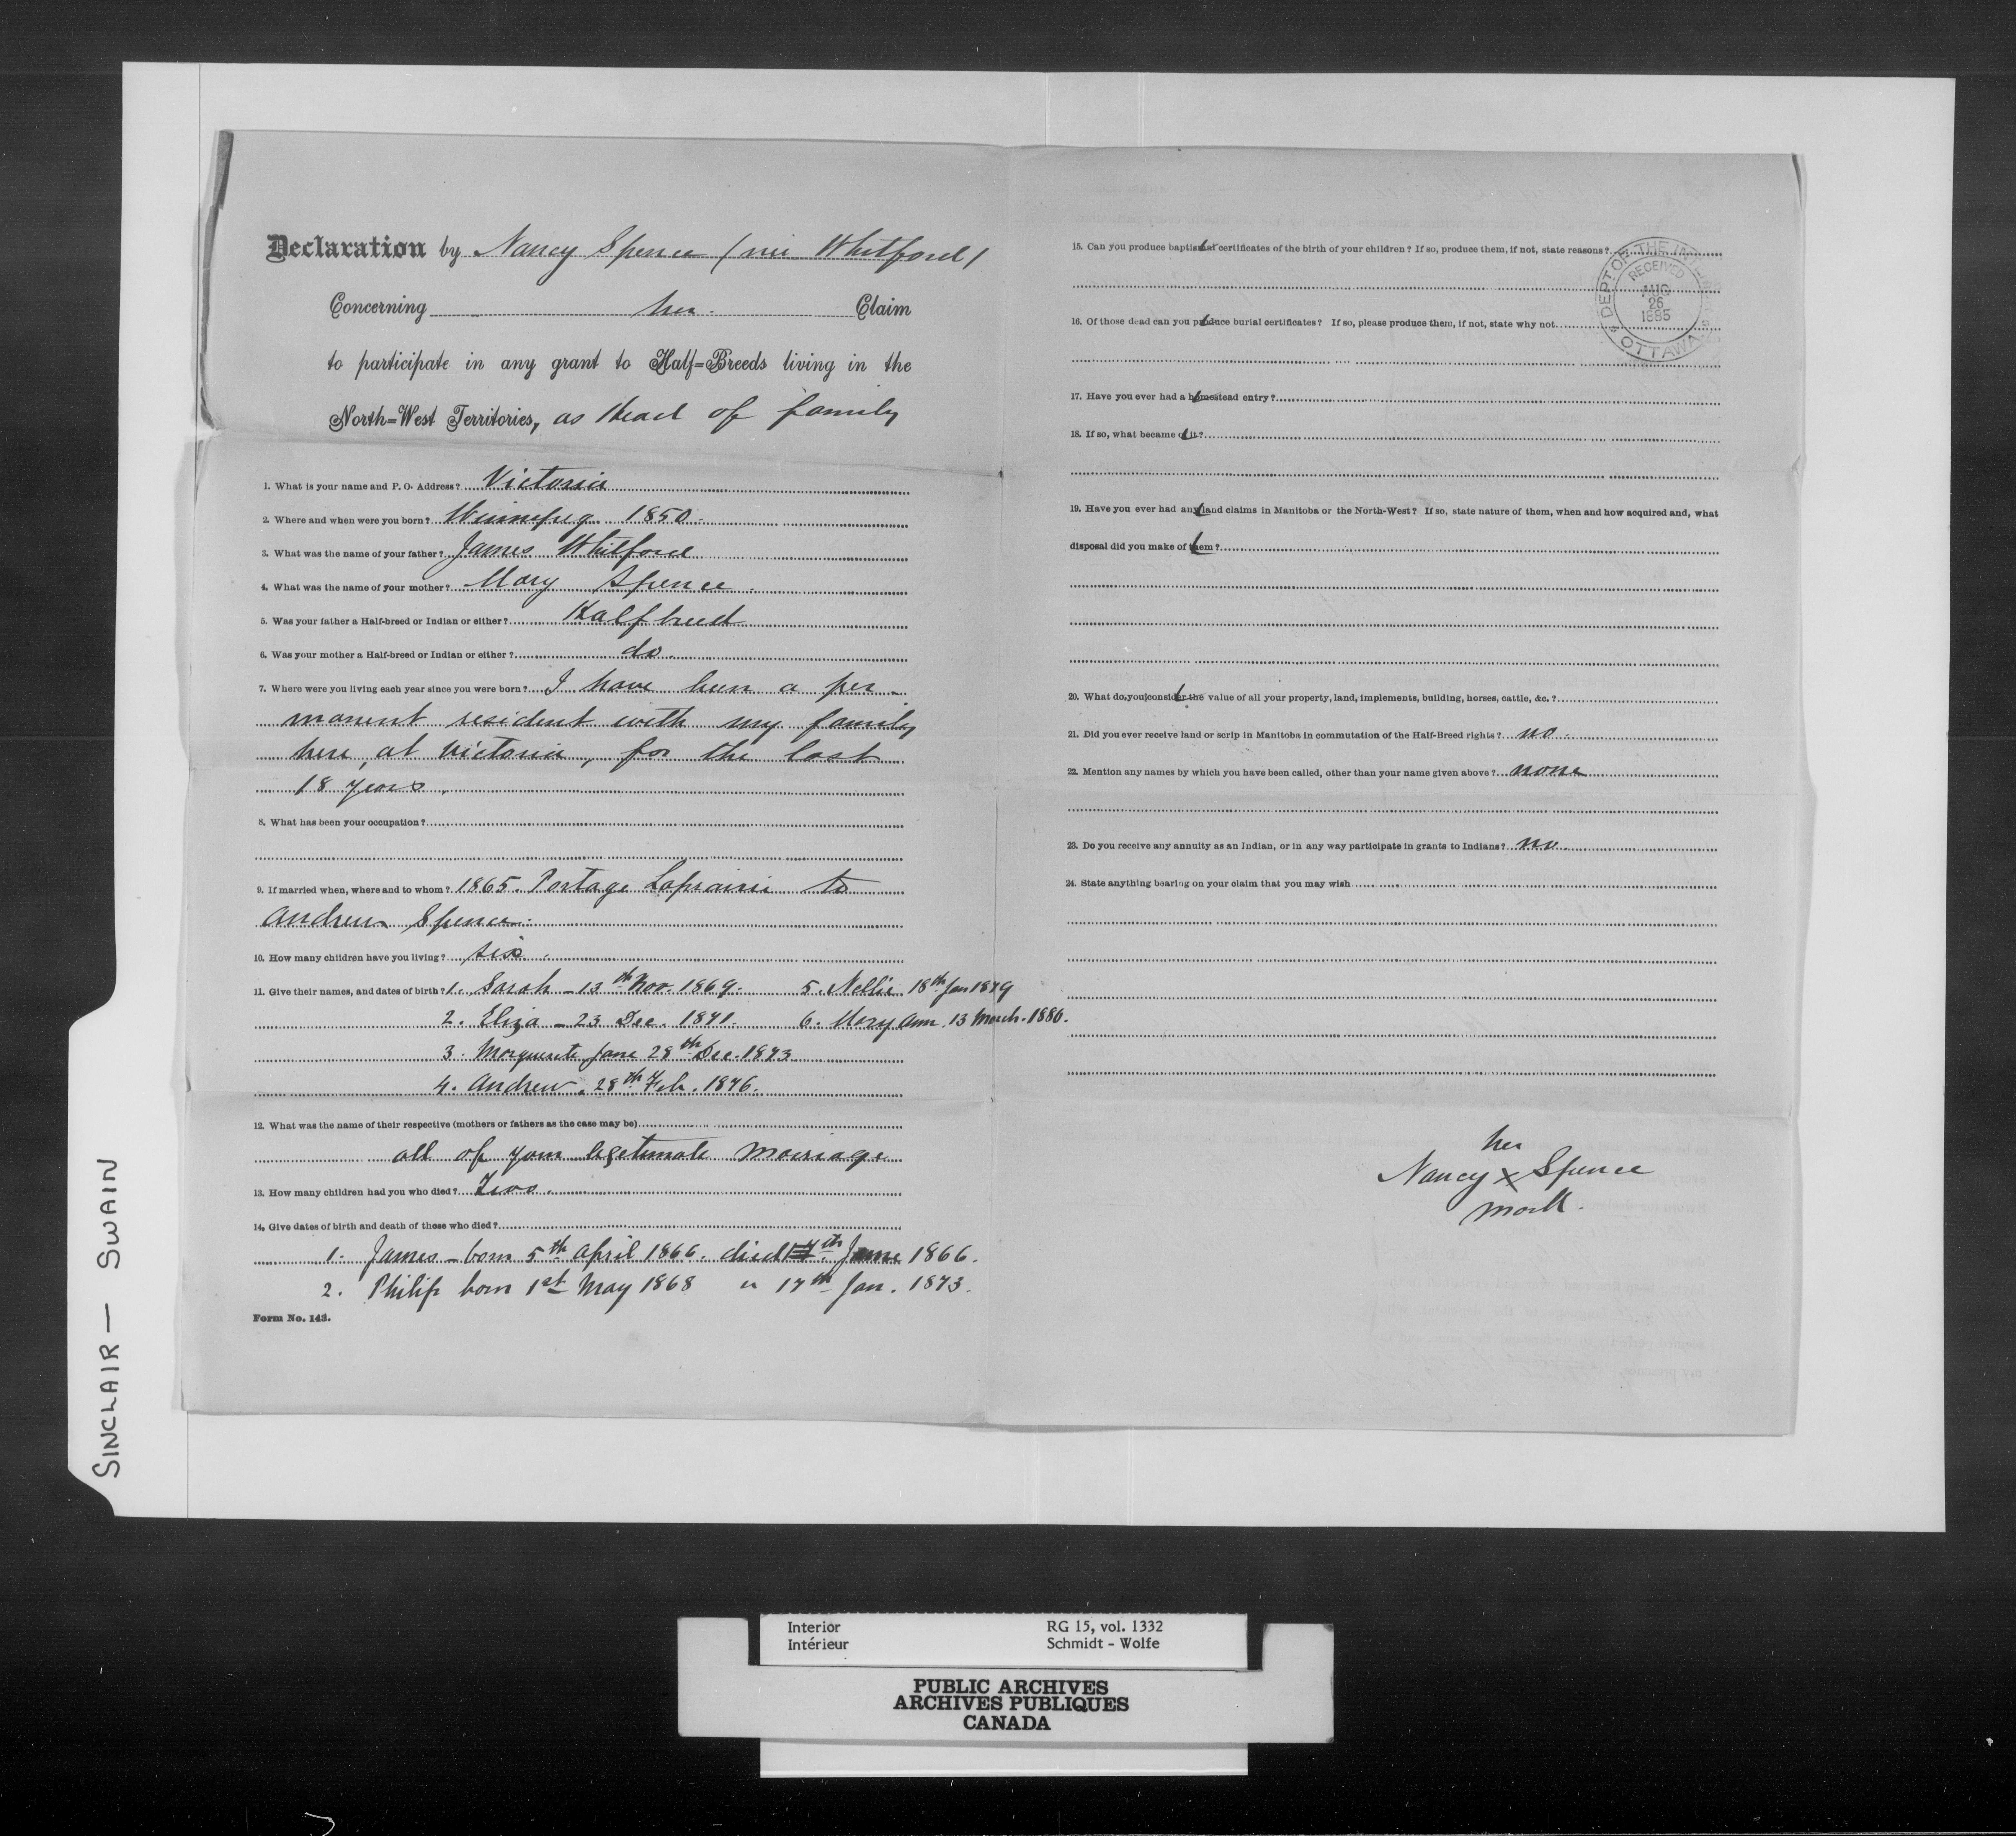 Declaration by Nancy Spence (nee Whitford)
Concerning her. Claim
to participate in any grant to Half=Breeds living in the
North=West Territories, as Head of family
1. What is your name and P. O. Address? Victoria
2. Where and when were you born? Winnipeg 1850.
3. What was the name of your father? James Whitford
4. What was the name of your mother? Mary Spence.
5. Was your father a Half-breed or Indian or either? Halfbreed
6. Was your mother a Half-breed or Indian or either? do.
7. Where were you living each year since you were born? I have been a per-
manent resident with my family
here, at Victoria, for the last
18 years.
8. What has been your occupation?
9. If married when, where and to whom? 1865. Portage Laprairie to
Andrew Spence.
10. How many children have you living? six.
11. Give their names, and dates of birth? 1. Sarah - 13th Nov. 1869. 5. Nellie 18th Jan 1879
2. Eliza - 23 Dec. 1871. 6. Mary Ann. 13 March. 1880.
3. Marguerite Jane 28th Dec. 1873
4. Andrew. 28th Feb. 1876.
12. What was the name of their respective (mothers or fathers as the case may be)
all of your legetimate marriage
13. How many children had you who died? Two.
14. Give dates of birth and death of those who died?
1. James - born 5th April 1866. died 7th June 1866.
2. Philip born 1st May 1868 " 17th Jan. 1873.
Form No. 143.
15. Can you produce baptismal certificates of the birth of your children? If so, produce them, if not, state reasons?
16. Of those dead can you produce burial certificates? If so, please produce them, if not, state why not
17. Have you ever had a homestead entry?
18. If so, what became of it?
19. Have you ever had any land claims in Manitoba or the North-West? If so, state nature of them, when and how acquired and, what
disposal did you make of them?
20. What do you consider the value of all your property, land, implements, building, horses, cattle, &c.?
21. Did you ever receive land or scrip in Manitoba in commutation of the Half-Breed rights? no.
22. Mention any names by which you have been called, other than your name given above? none
23. Do you receive any annuity as an Indian, or in any way participate in grants to Indians? no.
24. State anything bearing on your claim that you may wish
her
Nancy X Spence
mark.
DEPT OF THE INTERIOR
RECEIVED
AUG
26
1885
OTTAWA
SINCLAIR — SWAIN
Interior RG 15, vol. 1332
Intérieur Schmidt - Wolfe
PUBLIC ARCHIVES
ARCHIVES PUBLIQUES
CANADA